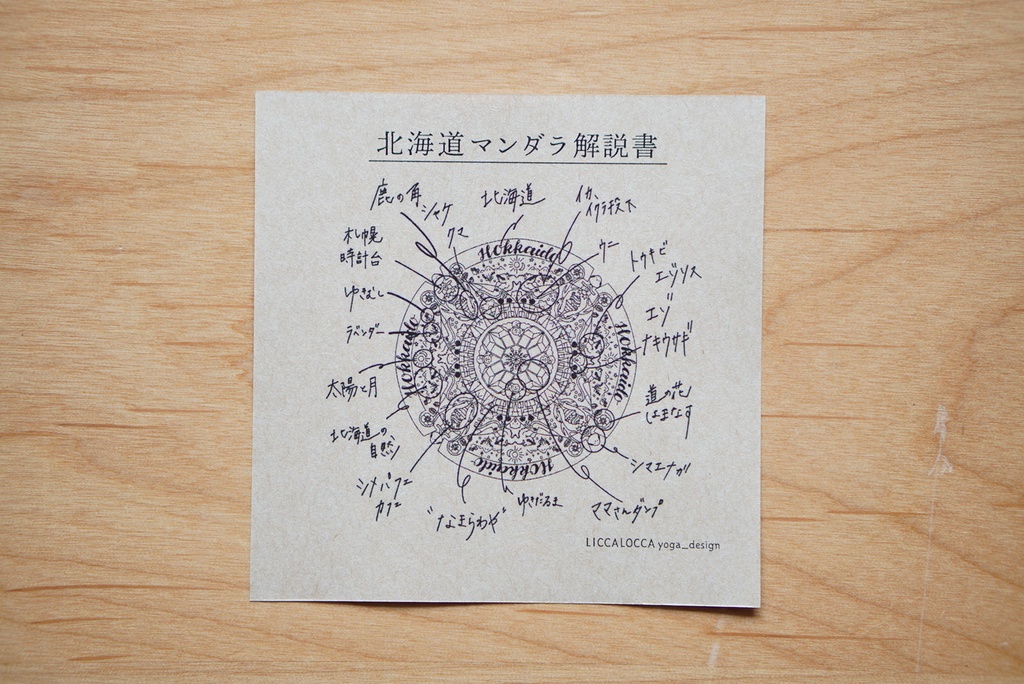 北海道マンダラ解説書
鹿の角
シャケ
クマ
北海道
イカ、
イクラ投下
ウニ
トウキビ
エゾリス
エゾ
ナキウサギ
札幌
時計台
ゆきむし
ラベンダー
太陽と月
北海道の
自然
シメパフェ
カフェ
"なまらわや"
ゆきだるま
ママさんダンプ
シマエナガ
道の花
はまなす
Hokkaido
Hokkaido
Hokkaido
Hokkaido
LICCALOCCA yoga_design